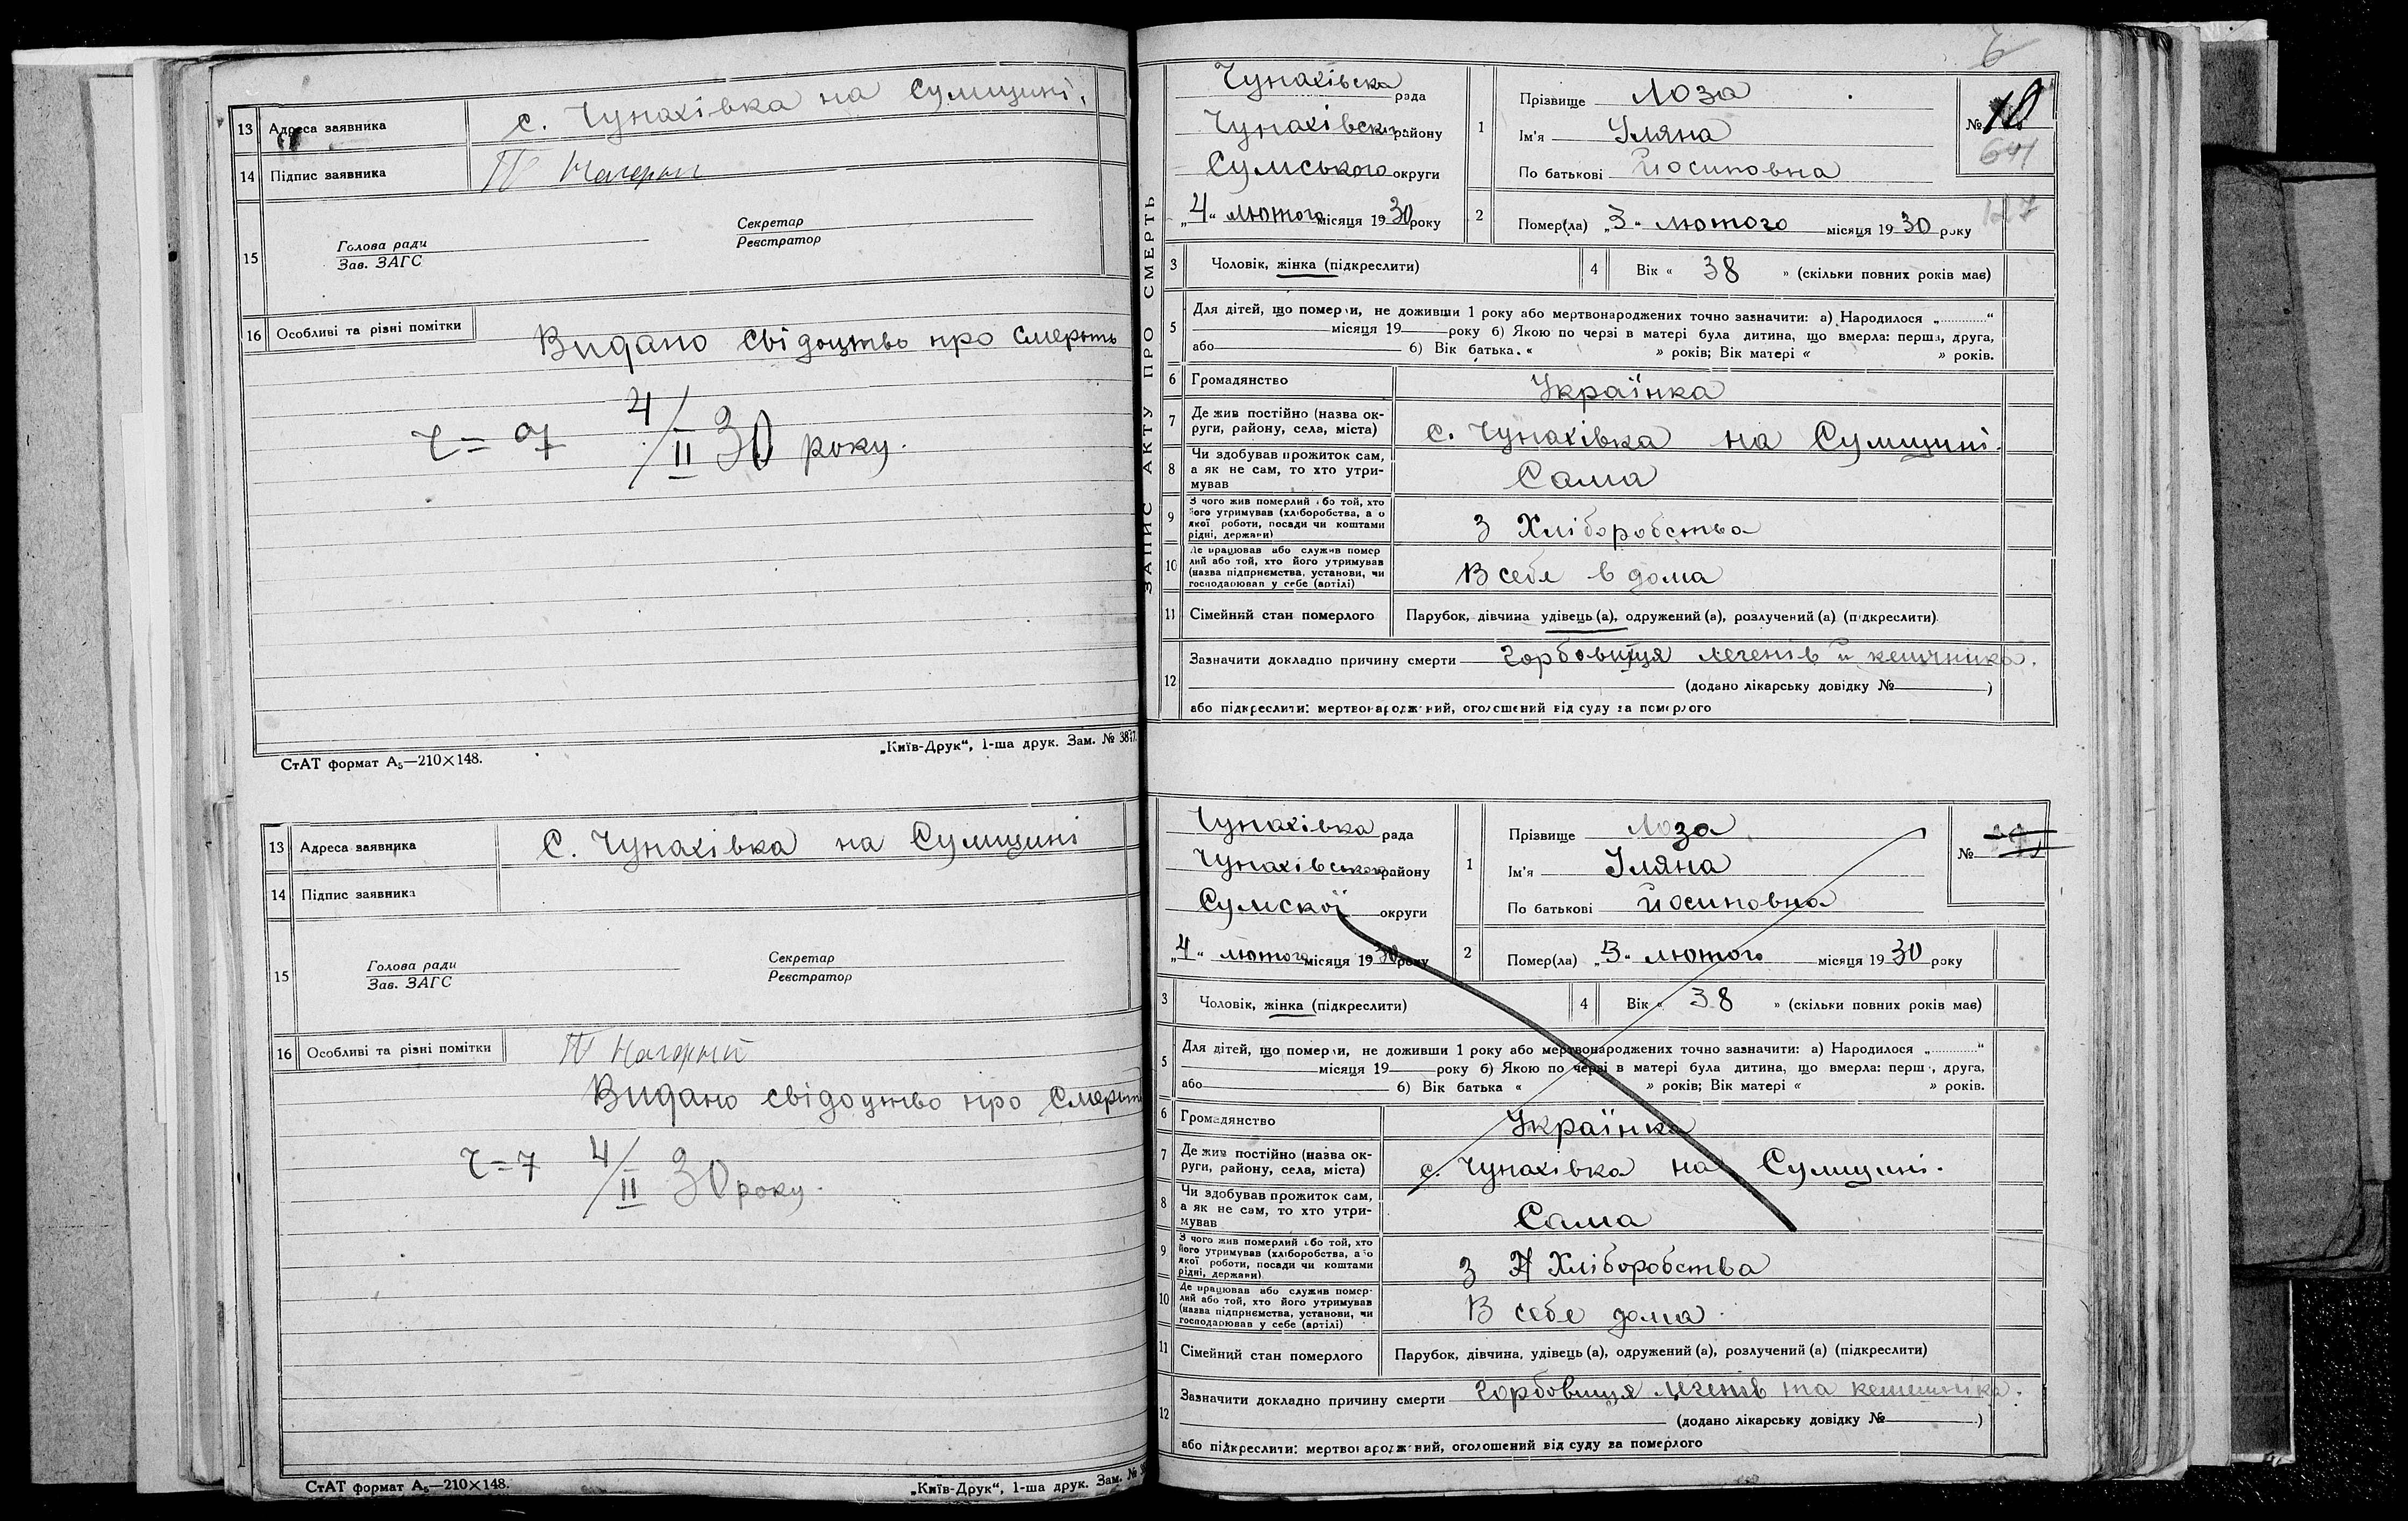 13 Адреса заявника с. Чупахівка на Сумщині.
14 Підпис заявника
15 Голова ради Секретар
Зав. ЗАГС Реєстратор
16 Особливі та різні помітки Видано свідоцтво про смерть
ч = 7 4/II 30 року.
СтАТ формат А₅—210×148. „Київ-Друк“, 1-ша друк. Зам. №
13 Адреса заявника С. Чупахівка на Сумщині
14 Підпис заявника
15 Голова ради Секретар
Зав. ЗАГС Реєстратор
16 Особливі та різні помітки
Видано свідоцтво про смерть
ч = 7 4/II 30 року.
СтАТ формат А₅—210×148. „Київ-Друк“, 1-ша друк. Зам. №
6
ЗАПИС АКТУ ПРО СМЕРТЬ
Чупахівска рада
Чупахівског району
Сумського округи
„4“ лютого місяця 1930 року
1 Прізвище Лоза
Ім'я Уляна
По батькові Йосиповна
№ 10
641
127
2 Помер(ла) „3“ лютого місяця 1930 року
3 Чоловік, жінка (підкреслити) 4 Вік « 38 » (скільки повних років має)
5 Для дітей, що померли, не доживши 1 року або мертвонароджених точно зазначити: а) Народилося „............“
місяця 19 року б) Якою по черзі в матері була дитина, що вмерла: перша, друга,
або б) Вік батька « » років; Вік матері « » років.
6 Громадянство Українка
7 Де жив постійно (назва округи, району, села, міста) с. Чупахівка на Сумщині.
8 Чи здобував прожиток сам, а як не сам, то хто утримував Сама
9 З чого жив померлий або той, хто його утримував (хліборобства, або якої роботи, посади чи коштами рідні, держави) З Хліборобства
10 Де працював або служив померлий або той, хто його утримував (назва підприємства, установи, чи господарював у себе (артілі) В себе в дома
11 Сімейний стан померлого Парубок, дівчина удівець (а), одружений (а), розлучений (а) (підкреслити)
12 Зазначити докладно причину смерти легенів й
(додано лікарську довідку № )
або підкреслити: мертвонароджений, оголошений від суду за померлого
Чупахівка рада
Чупахівського району
Сумскої округи
„4“ лютого місяця 1930 року
1 Прізвище Лоза
Ім'я Уляна
По батькові Йосиповна
№
2 Помер(ла) „3“ лютого місяця 1930 року
3 Чоловік, жінка (підкреслити) 4 Вік « 38 » (скільки повних років має)
5 Для дітей, що померли, не доживши 1 року або мертвонароджених точно зазначити: а) Народилося „............“
місяця 19 року б) Якою по черзі в матері була дитина, що вмерла: перш , друга,
або б) Вік батька « » років; Вік матері « » років.
6 Громадянство Українка
7 Де жив постійно (назва округи, району, села, міста) с. Чупахівка на Сумщині.
8 Чи здобував прожиток сам, а як не сам, то хто утримував Сама
9 З чого жив померлий або той, хто його утримував (хліборобства, або якої роботи, посади чи коштами рідні, держави) З Хліборобства
10 Де працював або служив померлий або той, хто його утримував (назва підприємства, установи, чи господарював у себе (артілі) В себе дома
11 Сімейний стан померлого Парубок, дівчина, удівець (а), одружений (а), розлучений (а) (підкреслити)
12 Зазначити докладно причину смерти легенів та
(додано лікарську довідку № )
або підкреслити: мертвонароджений, оголошений від суду за померлого